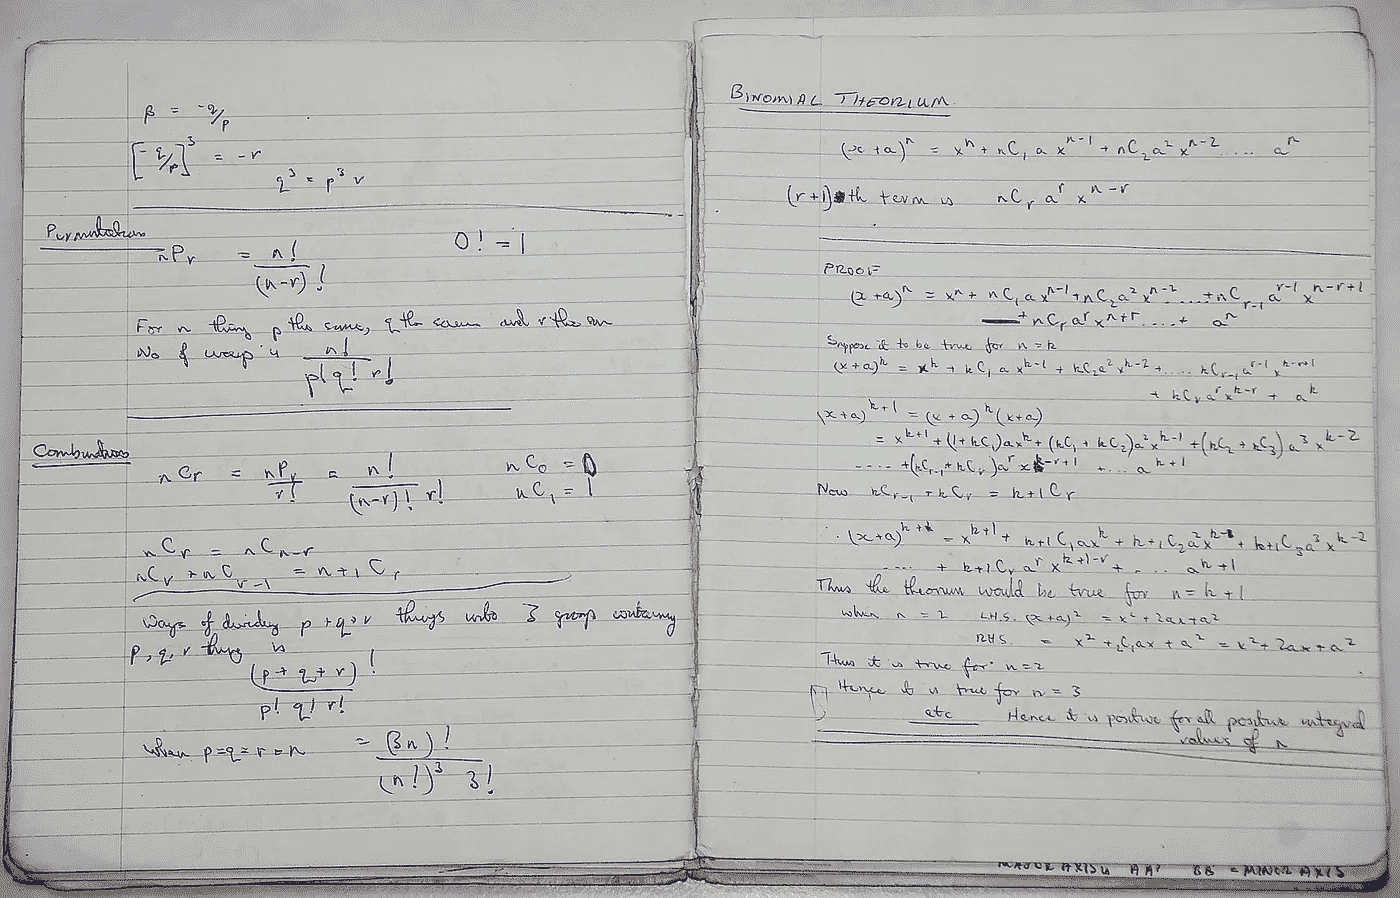 β = -q/p
[-q/p]³ = -r
q³ = p³ r
Permutations
nPr = n!/(n-r)!
0! = 1
For n thing p the same, q the same and r the
No of ways is n!/p! q! r!
Combinations
nCr = nPr/r! = n!/(n-r)! r!
nC₀ = 0
nC₁ = 1
nCr = nCn-r
nCr + nCr-1 = n+1Cr
Ways of dividing p+q+r things into 3 group containing
p, q, r things is
(p+q+r)!/p! q! r!
when p=q=r=n = (3n)!/(n!)³ 3!
BINOMIAL THEORIUM.
(x+a)ⁿ = xⁿ + nC₁ a xⁿ⁻¹ + nC₂ a² xⁿ⁻² .... aⁿ
(r+1)th term is nCr aʳ xⁿ⁻ʳ
PROOF
(x+a)ⁿ = xⁿ + nC₁ a xⁿ⁻¹ + nC₂ a² xⁿ⁻² ..... + nCr-1 aʳ⁻¹ xⁿ⁻ʳ⁺¹
+ nCr aʳ xⁿ⁺ʳ ....+ aⁿ
Suppose it to be true for n=k
(x+a)ᵏ = xᵏ + kC₁ a xᵏ⁻¹ + kC₂ a² xᵏ⁻² + ..... kCr-1 aʳ⁻¹ xᵏ⁻ʳ⁺¹
+ kCr aʳ xᵏ⁻ʳ + aᵏ
(x+a)ᵏ⁺¹ = (x+a)ᵏ (x+a)
= xᵏ⁺¹ + (1+kC₁)axᵏ + (kC₁ + kC₂)a² xᵏ⁻¹ + (kC₂ + kC₃) a³ xᵏ⁻²
.... + (kCr-1 + kCr) aʳ xᵏ⁻ʳ⁺¹ + ... aᵏ⁺¹
Now kCr-1 + kCr = k+1Cr
∴ (x+a)ᵏ⁺¹ = xᵏ⁺¹ + k+1C₁ axᵏ + k+1C₂ a² xᵏ⁻¹ + k+1C₃ a³ xᵏ⁻²
.... + k+1Cr aʳ xᵏ⁺¹⁻ʳ + .... aᵏ⁺¹
Thus the theorium would be true for n=k+1
when n=2 L.H.S. (x+a)² = x² + 2ax + a²
RHS. = x² + ₂C₁ax + a² = x² + 2ax + a²
Thus it is true for n=2
Hence it is true for n=3
etc Hence it is positive for all positive integral
values of n
MAJOR AXIS AA' BB = MINOR AXIS